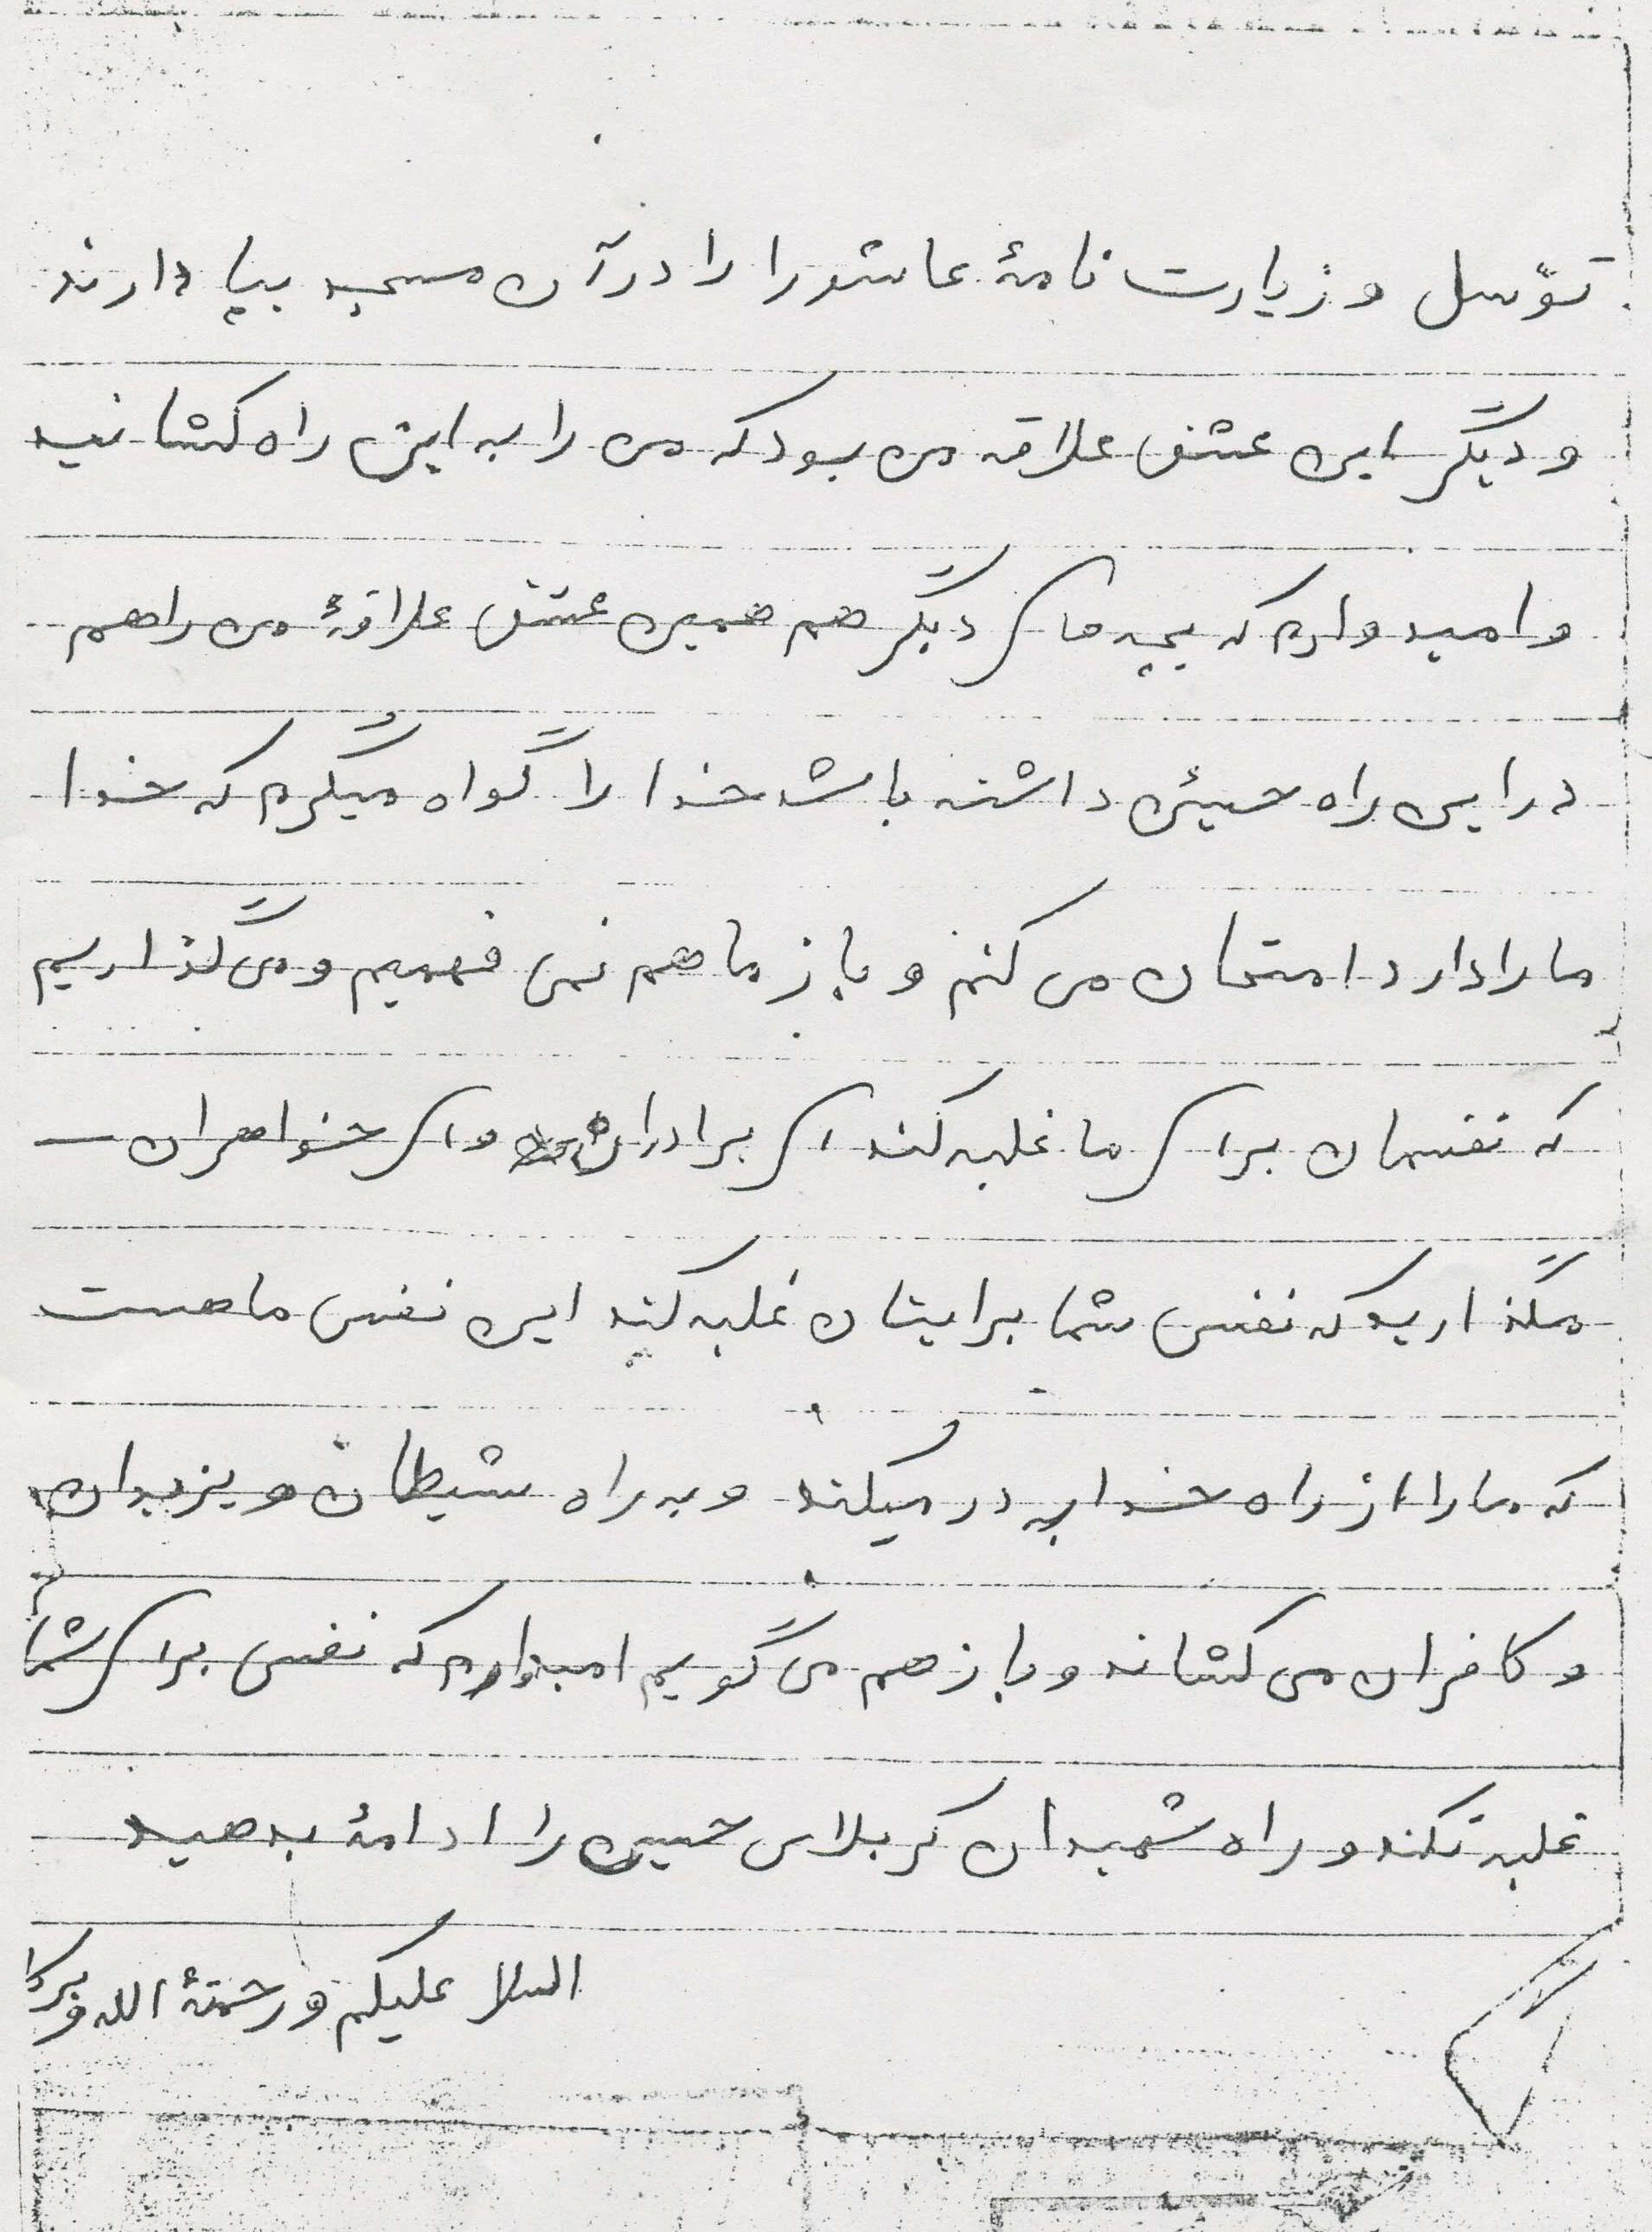 توّسل و زیارت نامهٔ عاشورا را در آن مسجد بپا دارند
و دیگر این عشق علاقه من بود که من را به این راه کشانید
و امیدوارم که بچه های دیگر هم همین عشق علاقهٔ من را هم
در این راه حسین داشته باشد خدا را گواه میگرم که خدا
ما را دارد امتحان می کنم و باز ما هم نمی فهمیم و می گذاریم
که نفسمان برای ما غلبه کند ای برادران و ای خواهران
مگذارید که نفس شما برایتان غلبه کند این نفس ما هست
که ما را از راه خدا به در میکند و به راه شیطان و یزیدان
و کافران می کشاند و باز هم می گویم امیدوارم که نفس برای شما
غلبه نکند و راه شهیدان کربلای حسین را ادامهٔ بدهید
السلا علیکم و رحمتهٔ الله